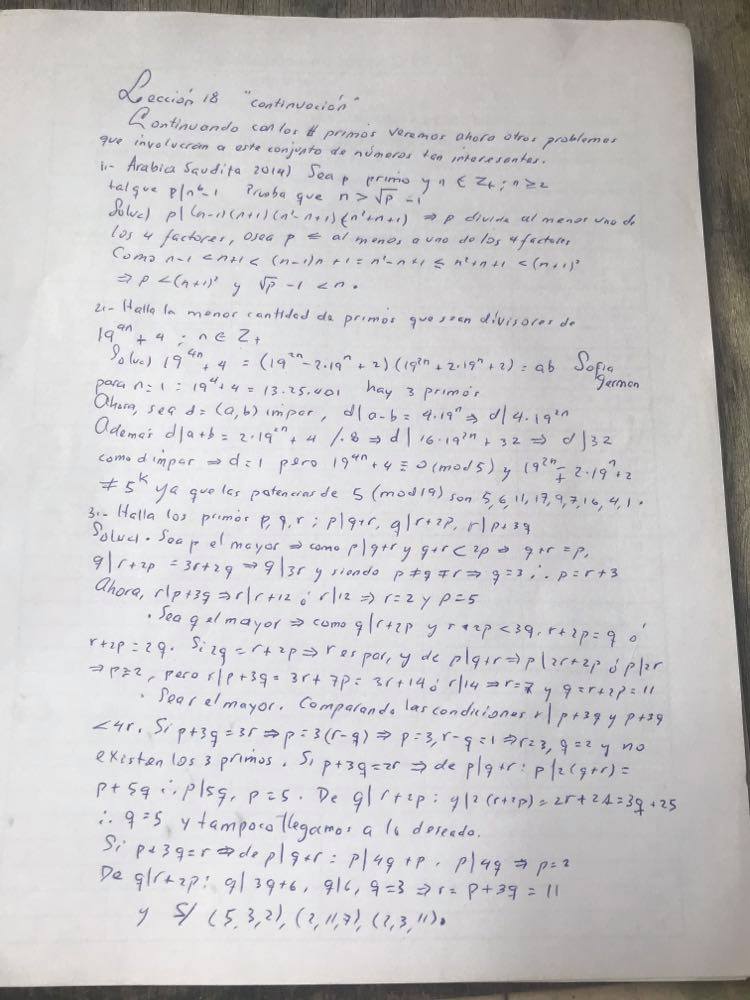 Lección 18 "continuación"
Continuando con los # primos veremos ahora otros problemas
que involucran a este conjunto de números tan interesantes.
1.- Arabia Saudita 2014) Sea p primo y n ∈ Z+ ; n ≥ 2
tal que p | n⁶-1 Prueba que n > √p -1
Soluc) p | (n-1)(n+1)(n²-n+1)(n²+n+1) ⇒ p divide al menos uno de
los 4 factores, osea p ≤ al menos a uno de los 4 factores
Como n-1 < n+1 < (n-1)n+1 = n²-n+1 ≤ n²+n+1 < (n+1)²
⇒ p < (n+1)² y √p -1 < n.
2.- Halla la menor cantidad de primos que sean divisores de
19⁴ⁿ + 4 ; n ∈ Z+
Soluc) 19⁴ⁿ + 4 = (19²ⁿ - 2·19ⁿ + 2)(19²ⁿ + 2·19ⁿ + 2) = ab Sofia
German
para n=1 : 19⁴+4 = 13·25·401 hay 3 primos
Ahora, sea d = (a,b) impar, d | a-b = 4·19ⁿ ⇒ d | 4·19²ⁿ
Además d | a+b = 2·19²ⁿ + 4 /·8 ⇒ d | 16·19²ⁿ + 32 ⇒ d | 32
como d impar ⇒ d=1 pero 19⁴ⁿ + 4 ≡ 0 (mod 5) y 19²ⁿ ∓ 2·19ⁿ + 2
≠ 5ᵏ ya que las potencias de 5 (mod 19) son 5, 6, 11, 17, 9, 7, 16, 4, 1.
3.- Halla los primos p, q, r ; p | q+r, q | r+2p, r | p+3q
Soluc. · Sea p el mayor ⇒ como p | q+r y q+r < 2p ⇒ q+r = p,
q | r+2p = 3r+2q ⇒ q | 3r y siendo p ≠ q ≠ r ⇒ q=3 ∴ p=r+3
Ahora, r | p+3q ⇒ r | r+12 ó r | 12 ⇒ r=2 y p=5
· Sea q el mayor ⇒ como q | r+2p y r+2p < 3q. r+2p = q ó
r+2p = 2q. Si 2q = r+2p ⇒ r es par, y de p | q+r ⇒ p | 2r+2p ó p | 2r
⇒ p=2, pero r | p+3q = 3r+7p = 3r+14 ó r | 14 ⇒ r=7 y q=r+2p=11
· Sea r el mayor. Comparando las condiciones r | p+3q y p+3q
< 4r. Si p+3q = 3r ⇒ p = 3(r-q) ⇒ p=3, r-q=1 ⇒ r=3, q=2 y no
existen los 3 primos. Si p+3q = 2r ⇒ de p | q+r : p | 2(q+r) =
p+5q ∴ p | 5q, p=5. De q | r+2p : q | 2(r+2p) = 2r+24 = 3q+25
∴ q=5 y tampoco llegamos a lo deseado.
Si p+3q = r ⇒ de p | q+r : p | 4q+p, p | 4q ⇒ p=2
De q | r+2p : q | 3q+6, q | 6, q=3 ⇒ r = p+3q = 11
y S/ (5,3,2), (2,11,7), (2,3,11).